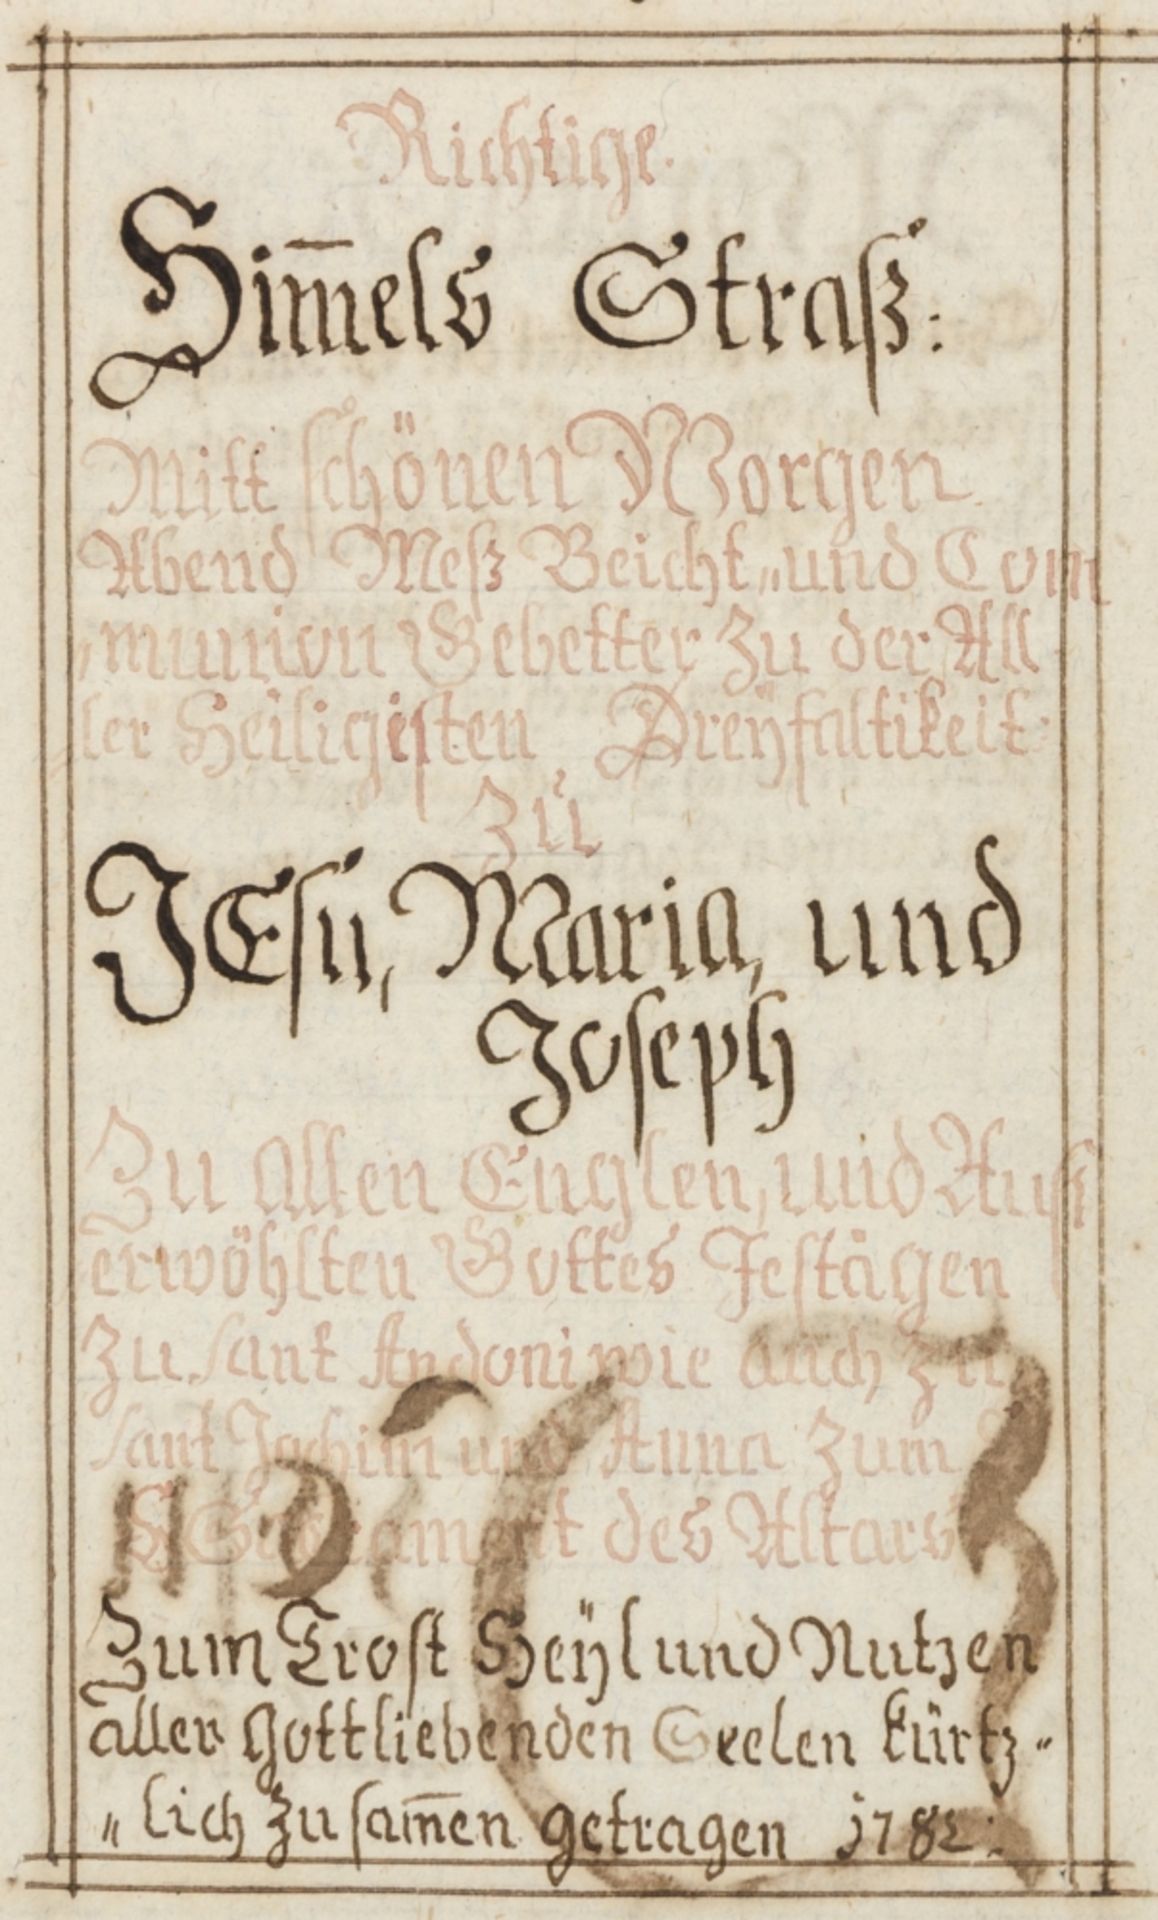 Richtige.
Him̄els Straß:
Mitt schönen Morgen
Abend Meß Beicht„und Com
„munion Gebetter Zu der All
ler Heiligisten Dreÿfaltikeit
Zu
JEsu, Maria, und
Joseph
Zu allen Englen, und Auß
erwöhlten Gottes Festägen
Zu sant Andoni wie auch zu
sant Jochim und Anna Zum
H. Sacrament des Altars
Zum Trost Heÿl und Nutzen
aller Gottliebenden Seelen kürtz„
„lich Zusam̄en getragen 1782: